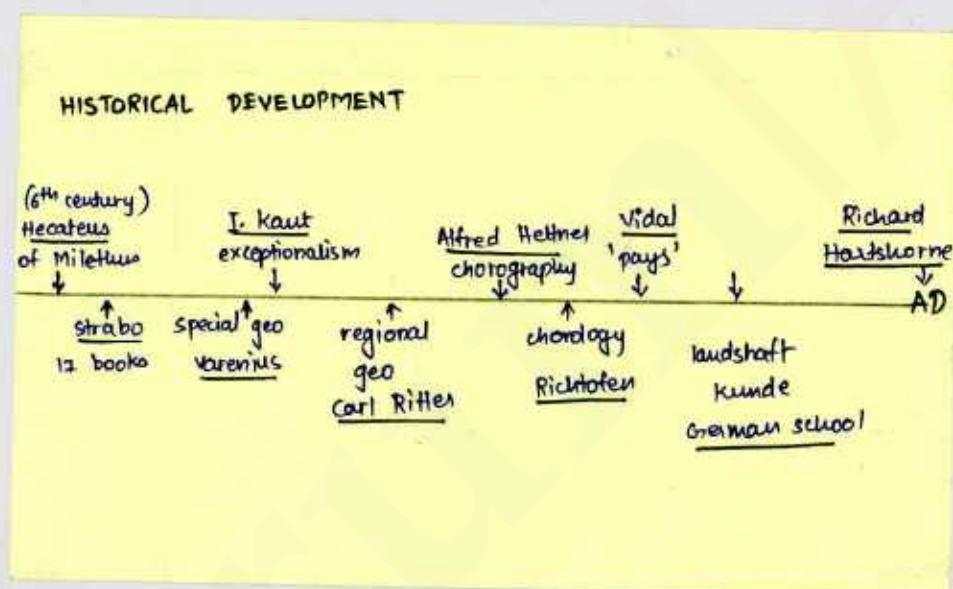 HISTORICAL DEVELOPMENT
(6th century)
Hecateus
of Milethus
I. Kaut
exceptionalism
Alfred Hettner
chorography
Vidal
'pays'
Richard
Hartshorne
AD
Strabo
17 books
special geo
varenius
regional
geo
Carl Ritter
chordogy
Richtofen
landshaft
kunde
German school